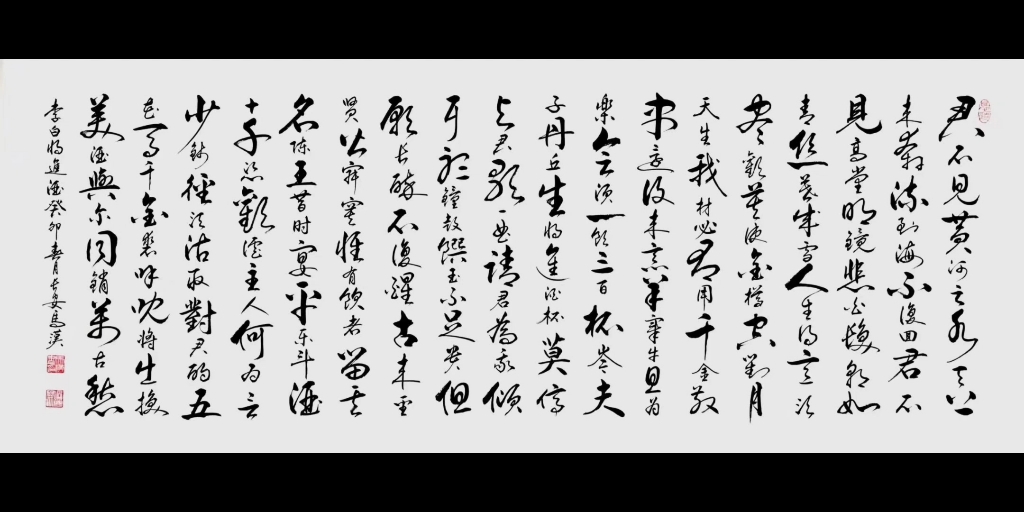 君不見黄河之水天上
来奔流到海不復回君不
見高堂明鏡悲白髮朝如
青丝暮成雪人生得意须
尽歡莫使金樽空對月
天生我材必有用千金散
尽還復来烹羊宰牛且为
樂会须一飲三百杯岑夫
子丹丘生将進酒杯莫停
与君歌一曲請君為我傾
耳聽鐘鼓饌玉不足贵但
願长醉不復醒古来圣
贤皆寂寞惟有飲者留其
名陈王昔时宴平乐斗酒
十千恣歡谑主人何为言
少錢徑须沽取對君酌五
花马千金裘呼児将出换
美酒與尔同銷萬古愁
李白将進酒癸卯春月长安馬